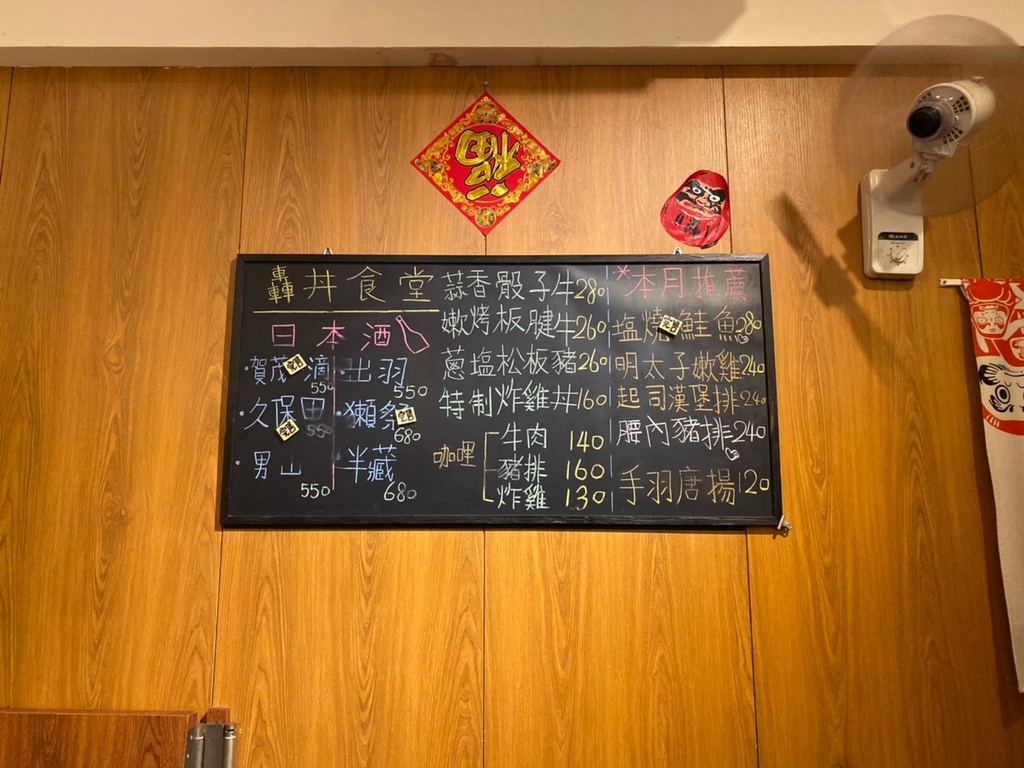 福
轟丼食堂
日本酒
·賀茂 滴 550
·出羽 550
·久保田 550
·獺祭 680
·男山 550
半藏 680
蒜香骰子牛280
嫩烤板腱牛260
蔥塩松板豬260
特制炸雞丼160
咖哩
牛肉 140
豬排 160
炸雞 130
*本月推薦
塩燒鮭魚280
明太子嫩雞240
起司漢堡排240
腰內豬排240
手羽唐揚120